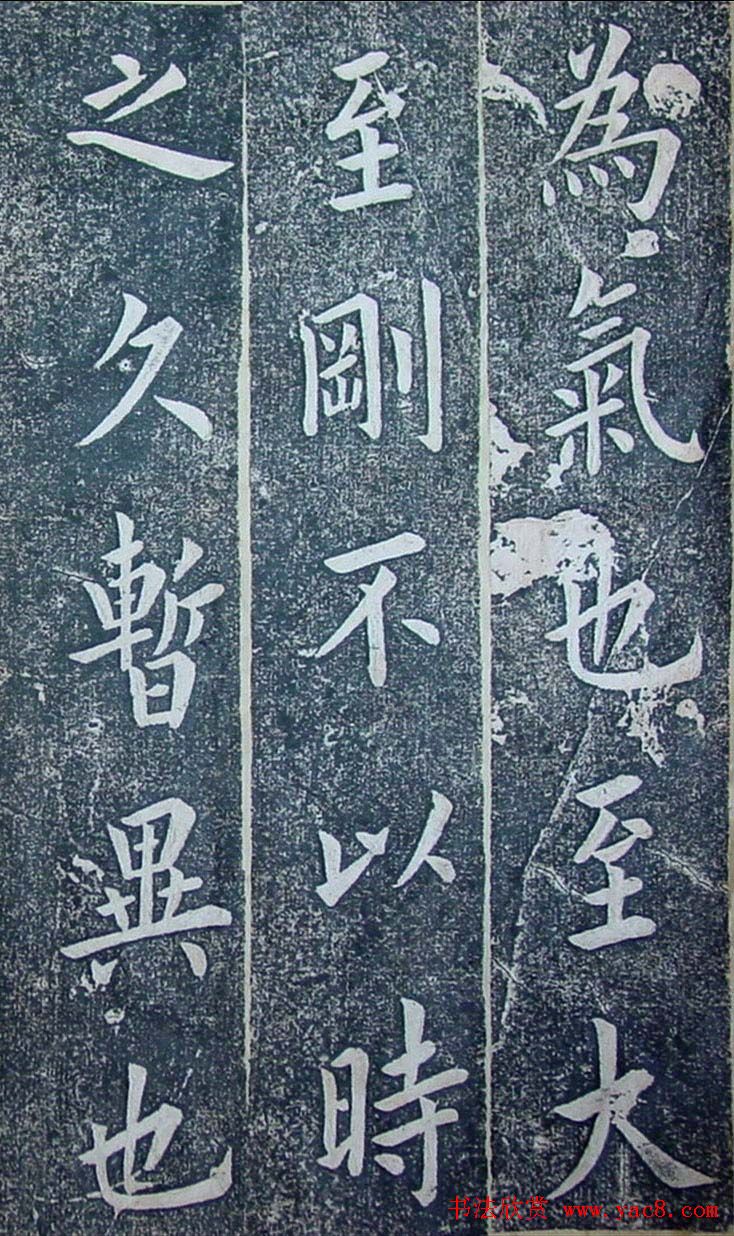 為氣也至大
至剛不以時
之久暫異也
书法欣赏 www.yac8.com